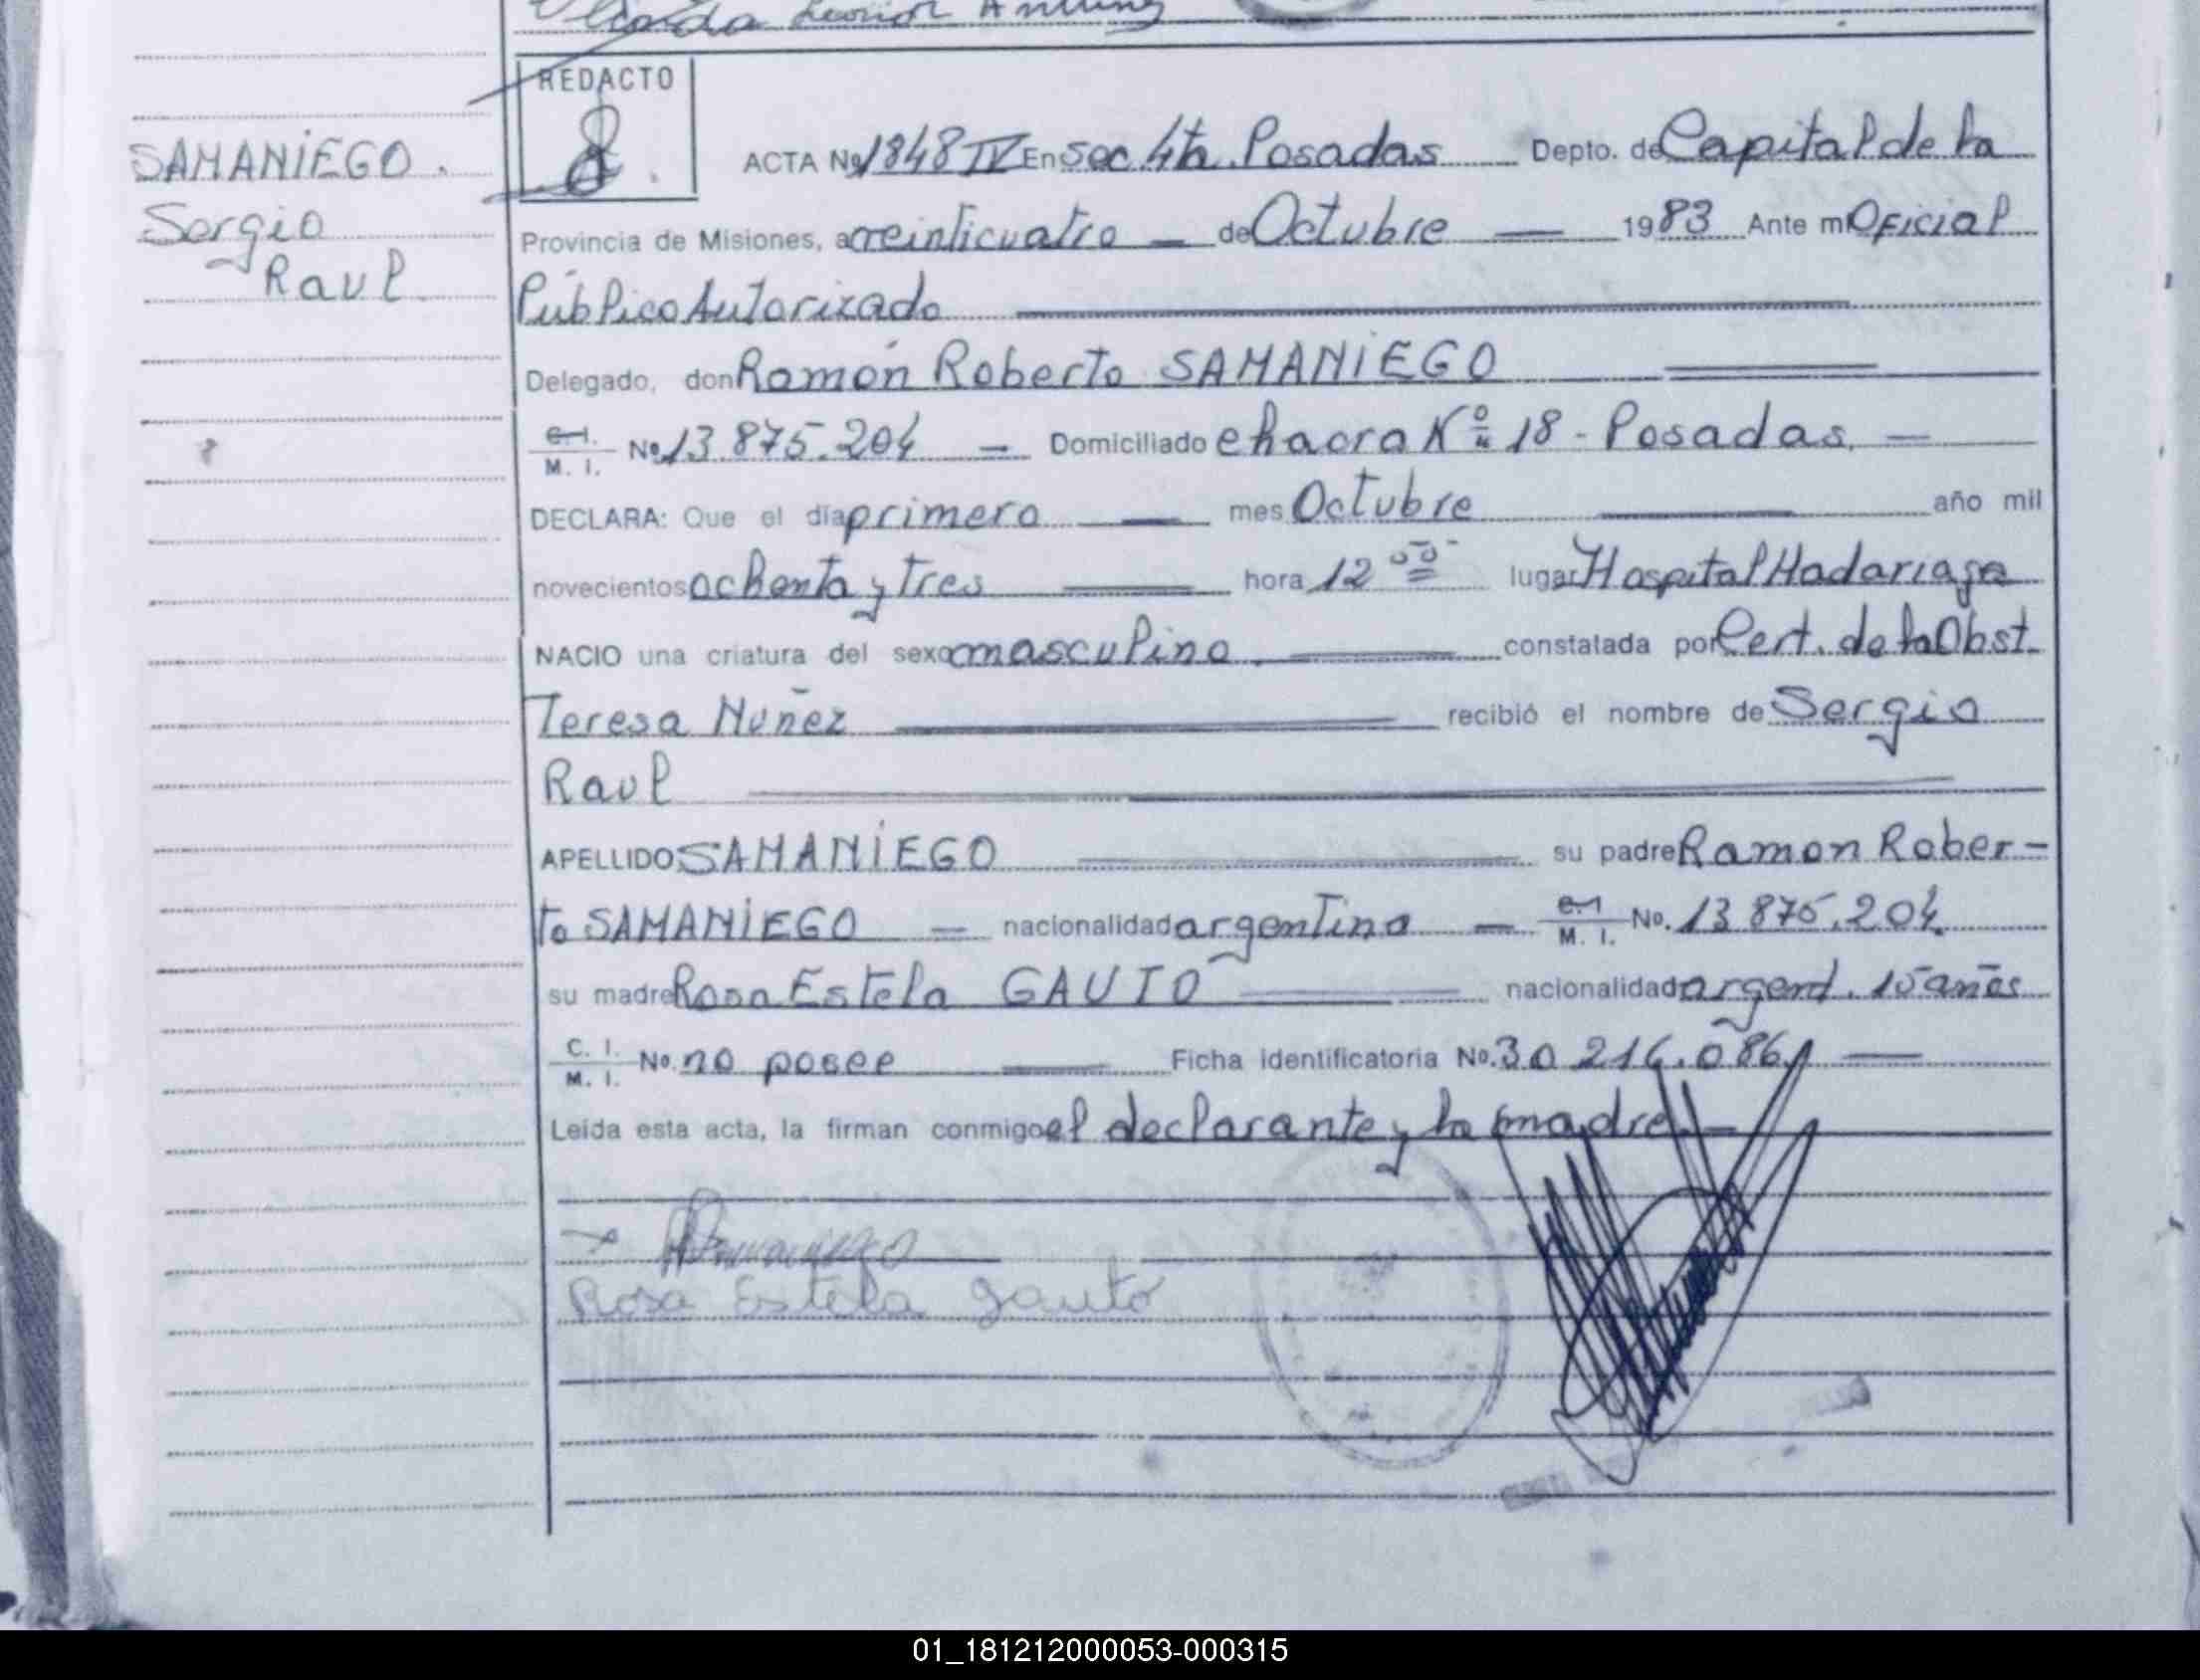 SAMANIEGO.
Sergio
Raul
REDACTO
ACTA Nº 1848 IV En sec 4ta. Posadas Depto. de Capital de la
Provincia de Misiones, a veinticuatro — de Octubre — 1983 Ante mi Oficial
Público Autorizado
Delegado, don Ramón Roberto SAMANIEGO
C. I. M. I. Nº 13.875.204 — Domiciliado chacra Nº 18 - Posadas. —
DECLARA: Que el día primero — mes Octubre — año mil
novecientos ochenta y tres — hora 12 00 lugar Hospital Madariaga
NACIO una criatura del sexo masculino. — constatada por Cert. de la Obst.
Teresa Nuñez — recibió el nombre de Sergio
Raul
APELLIDO SAMANIEGO — su padre Ramon Rober-
to SAMANIEGO — nacionalidad argentino — C. I. M. I. No. 13.875.204.
su madre Rosa Estela GAUTO — nacionalidad argent. 15 años
C. I. M. I. No. no posee — Ficha identificatoria No. 30.214.086 —
Leída esta acta, la firman conmigo el declarante y la madre. —
Rosa Estela Gauto
01_181212000053-000315